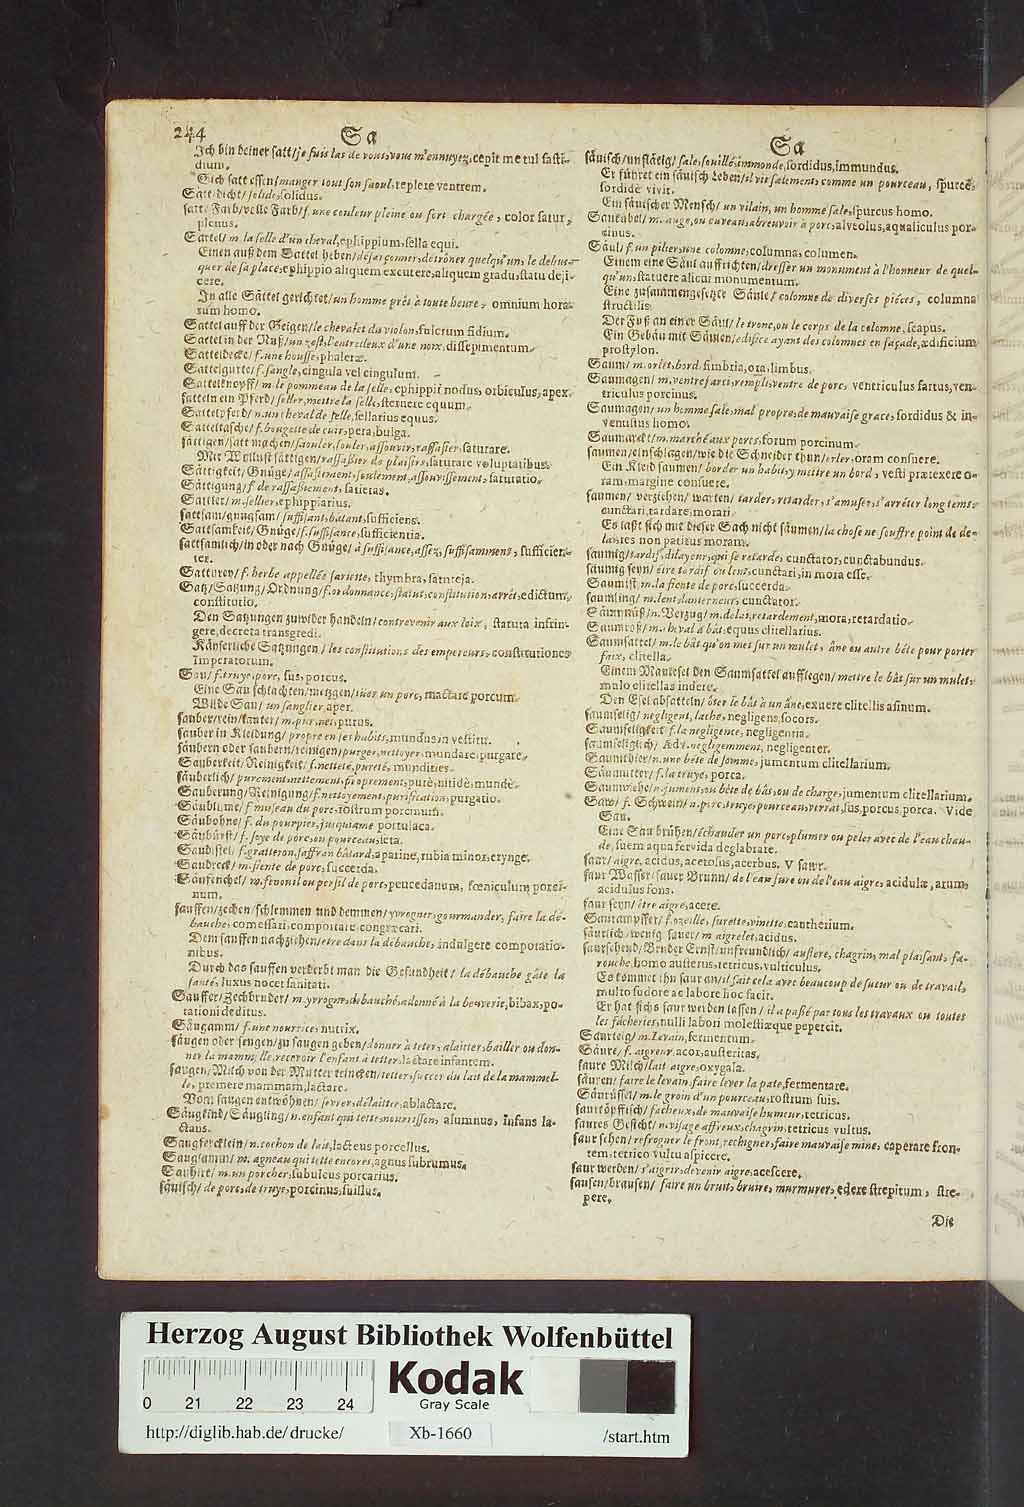 244
Sa
Ich bin deiner satt/je suis las de vous, vous m'ennuyez, cepit me tui fasti-
dium.
Sich satt essen/manger tout son saoul, replere ventrem.
Satt/dicht/solide, solidus.
satte Farb/volle Farb/f. une couleur pleine ou fort chargée, color satur,
plenus.
Sattel/m. la selle d'un cheval, ephippium, sella equi.
Einen auß dem Sattel heben/desarçonner, detrôner quelqu'un, le debus-
quer de sa place, ephippio aliquem excutere, aliquem gradu, statu deji-
cere.
In alle Sättel gerichtet/un homme prêt à toute heure, omnium hora-
rum homo.
Sattel auff der Geigen/le chevalet du violon, fulcrum fidium.
Sattel in der Nuß/un zest, l'entredeux d'une noix, dissepimentum.
Satteldecke/f. une housse, phaleræ.
Sattelgurte/f. sangle, cingula vel cingulum.
Sattelknopff/m. le pommeau de la selle, ephippii nodus, orbiculus, apex.
satteln ein Pferd/seller, mettre la selle, sternere equum.
Sattelpferd/n. un cheval de selle, sellarius equus.
Satteltasche/f. bougette de cuir, pera, bulga.
sättigen/satt machen/saouler, souler, assouvir, rassasier, saturare.
Mit Wollust sättigen/rassasier de plaisirs, saturare voluptatibus.
Sättigkeit/Gnüge/assasiement, soulement, assouvissement, saturatio.
Sättigung/f. de rassasiement, satietas.
Sattler/m. sellier, ephippiarius.
sattsam/gnugsam/suffisant, bâtant, sufficiens.
Sattsamkeit/Gnüge/f. suffisance, sufficientia.
sattsamlich/in oder nach Gnüge/à suffisance, assez, suffisamment, sufficien-
ter.
Satturey/f. herbe appellée sariette, thymbra, satureja.
Satz/Satzung/Ordnung/f. ordonnance, statut, constitution, arrêt, edictum,
constitutio.
Den Satzungen zuwider handeln/contrevenir aux loix, statuta infrin-
gere, decreta transgredi.
Käyserliche Satzungen/les constitutions des empereurs, constitutiones
Imperatorum.
Sau/f. truye, porc, sus, porcus.
Eine Sau schlachten/metzgen/tuer un porc, mactare porcum.
Wilde Sau/un sanglier, aper.
sauber/rein/lauter/m. pur, net, purus.
sauber in Kleidung/propre en ses habits, mundus in vestitu.
säubern oder saubern/reinigen/purger, nettoyer, mundare, purgare.
Sauberkeit/Reinigkeit/f. netteté, pureté, mundities.
säuberlich/purement, nettement, proprement, purè, nitidè, mundè.
Sauberung/Reinigung/f. nettoyement, purification, purgatio.
Säublume/f. museau du porc, rostrum porcinum.
Säubohne/f. du pourpier, jusquiame portulaca.
Säubürst/f. soye de porc, ou pourceau, seta.
Saudistel/f. gratteron, saffran bâtard, aparine, rubia minor, erynge.
Saudreck/m. fiente de porc, succerda.
Säufenchel/m. fenouil ou persil de porc, peucedanum, fœniculum porci-
num.
sauffen/zechen/schlemmen und demmen/yvrogner, gourmander, faire la dé-
bauche, comessari, compotare, congræcari.
Dem sauffen nachziehen/etre dans la débauche, indulgere compotatio-
nibus.
Durch das sauffen verderbt man die Gesundheit/la débauche gâte la
santé, luxus nocet sanitati.
Sauffer/Zechbruder/m. yvrogne, debauché, adonné à la beuverie, bibax, po-
tationi deditus.
Säugamm/f. une nourrice, nutrix.
säugen oder seugen/zu saugen geben/donner à teter, alaitter, bailler ou don-
ner la mammelle, recevoir l'enfant à tetter, lactare infantem.
saugen/Milch von der Mutter trincken/tetter, succer du lait de la mammel-
le, premere mammam, lactare.
Vom saugen entwöhnen/sevrer, délaitter, ablactare.
Säugkind/Säugling/n. enfant qui tette, nourrisson, alumnus, infans la-
ctans.
Saugfercklein/n. cochon de lait, lacteus porcellus.
Sauglamm/m. agneau qui tette encores, agnus subrumus.
Sauhirt/m. un porcher, subulcus porcarius.
säuisch/de porc, de truye, porcinus, suillus.
Sa
säuisch/unflätig/sale, souillé, immonde, sordidus, immundus.
Er führet ein säuisch Leben/il vit salement, comme un pourceau, spurcè,
sordidè vivit.
Ein säuischer Mensch/un vilain, un homme sale, spurcus homo.
Saukübel/m. auge, ou cuveau, abreuvoir à porc, alveolus, aqualiculus por-
cinus.
Säul/f. un pilier, une colomne, columna, columen.
Einem eine Säul auffrichten/dresser un monument à l'honneur de quel-
qu'un, statuere alicui monumentum.
Eine zusammengesetzte Säule/colomne de diverses piéces, columna
structilis.
Der Fuß an einer Säul/le trone, ou le corps de la colomne, scapus.
Ein Gebäu mit Säulen/edifice ayant des colomnes en façade, ædificium
prostylon.
Saum/m. orlet, bord, fimbria, ora, limbus.
Saumagen/m. ventre farci, rempli, ventre de porc, ventriculus fartus, ven-
triculus porcinus.
Saumagen/un homme sale, mal propre, de mauvaise grace, sordidus & in-
venustus homo.
Saumarckt/m. marché aux porcs, forum porcinum.
saumen/einschlagen/wie die Schneider thun/orler, oram consuere.
Ein Kleid saumen/border un habit, y mettre un bord, vesti prætexere o-
ram, margine consuere.
saumen/verziehen/warten/tarder, retarder, s'amuser, s'arrêter long tems,
cunctari, tardare, morari.
Es läßt sich mit dieser Sach nicht säumen/la chose ne souffre point de de-
lai, res non patitur moram.
saumig/tardif, dilayent, qui se retarde, cunctator, cunctabundus.
säumig seyn/être tardif ou lent, cunctari, in mora esse.
Saumist/m. la fiente de porc, succerda.
saumling/m. lent, lanterneur, cunctator.
Säumnüß/n. Verzug/m. delai, retardement, mora, retardatio.
Saumroß/m. cheval à bât, equus clitellarius.
Saumsattel/m. le bât qu'on met sur un mulet, âne ou autre bête pour porter
faix, clitella.
Einem Maulesel den Saumsattel aufflegen/mettre le bât sur un mulet,
mulo clitellas indere.
Den Esel absatteln/ôter le bât à un âne, exuere clitellis asinum.
saumselig/negligent, lache, negligens, socors.
Saumseligkeit/f. la negligence, negligentia.
saumseliglich/Adv. negligemment, negligenter.
Saumthier/n. une bête de somme, jumentum clitellarium.
Säumutter/f. la truye, porca.
Saumviehe/n. jument, ou bête de bâs, ou de charge, jumentum clitellarium.
Saw/f. Schwein/n. porc, truye, pourceau, verrat, sus, porcus, porca. Vide
Sau.
Eine Sau brühen/échauder un porc, plumer ou peler avec de l'eau chau-
de, suem aqua fervida deglabrare.
saur/aigre, acidus, acetosus, acerbus. V sawr.
saur Wasser/saurer Brunn/de l'eau sure ou de l'eau aigre, acidulæ, arum,
acidulus fons.
saur seyn/être aigre, acere.
Saurampffer/f. ozeille, surette, vinette, cantherium.
säurlich/wenig sauer/m. aigrelet, acidus.
saursehend/Bruder Ernst/unfreundlich/austere, chagrin, mal plaisant, fa-
rouche, homo austerus, tetricus, vulticulus.
Es kommet ihn saur an/il fait cela avec beaucoup de sueur ou de travail,
multo sudore ac labore hoc facit.
Er hat sichs saur werden lassen/il a passé par tous les travaux ou toutes
les fâcheries, nulli labori molestiæque pepercit.
Saurteig/m. Levain, fermentum.
Säure/f. aigreur, acor, austeritas.
saure Milch/lait aigre, oxygala.
säuren/faire le levain, faire lever la pate, fermentare.
Saurüssel/m. le groin d'un pourceau, rostrum suis.
saurtöpffisch/facheux, de mauvaise humeur, tetricus.
saures Gesicht/n. visage affreux, chagrin, tetricus vultus.
saur sehen/refrogner le front, rechigner, faire mauvaise mine, caperare fron-
tem, tetrico vultu aspicere.
saur werden/s'aigrir, devenir aigre, acescere.
sausen/brausen/faire un bruit, bruire, murmurer, edere strepitum, stre-
pere.
Die
Herzog August Bibliothek Wolfenbüttel
0 21 22 23 24
Kodak
Gray Scale
http://diglib.hab.de/drucke/
Xb-1660
/start.htm